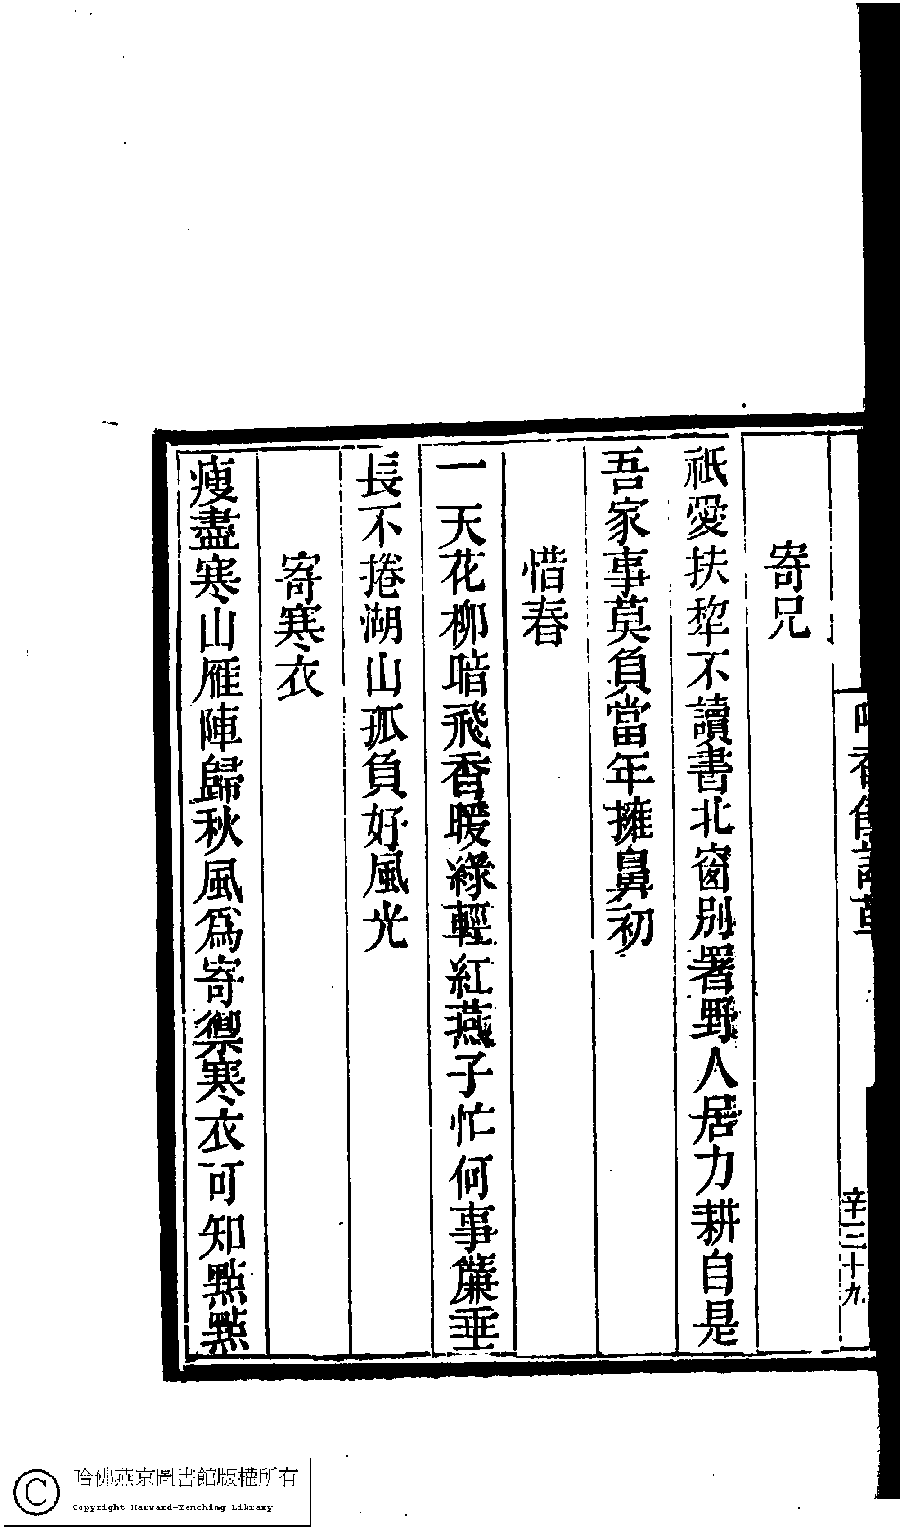 辛三十九
寄兄
祇愛扶犂不讀書北窗別署野人居力耕自是
吾家事莫負當年擁鼻初
惜春
一天花柳暗飛香暖綠輕紅燕子忙何事簾垂
長不捲湖山孤負好風光
寄寒衣
瘦盡寒山雁陣歸秋風爲寄禦寒衣可知點點
哈佛燕京圖書館版權所有
Copyright Harvard-Yenching Library